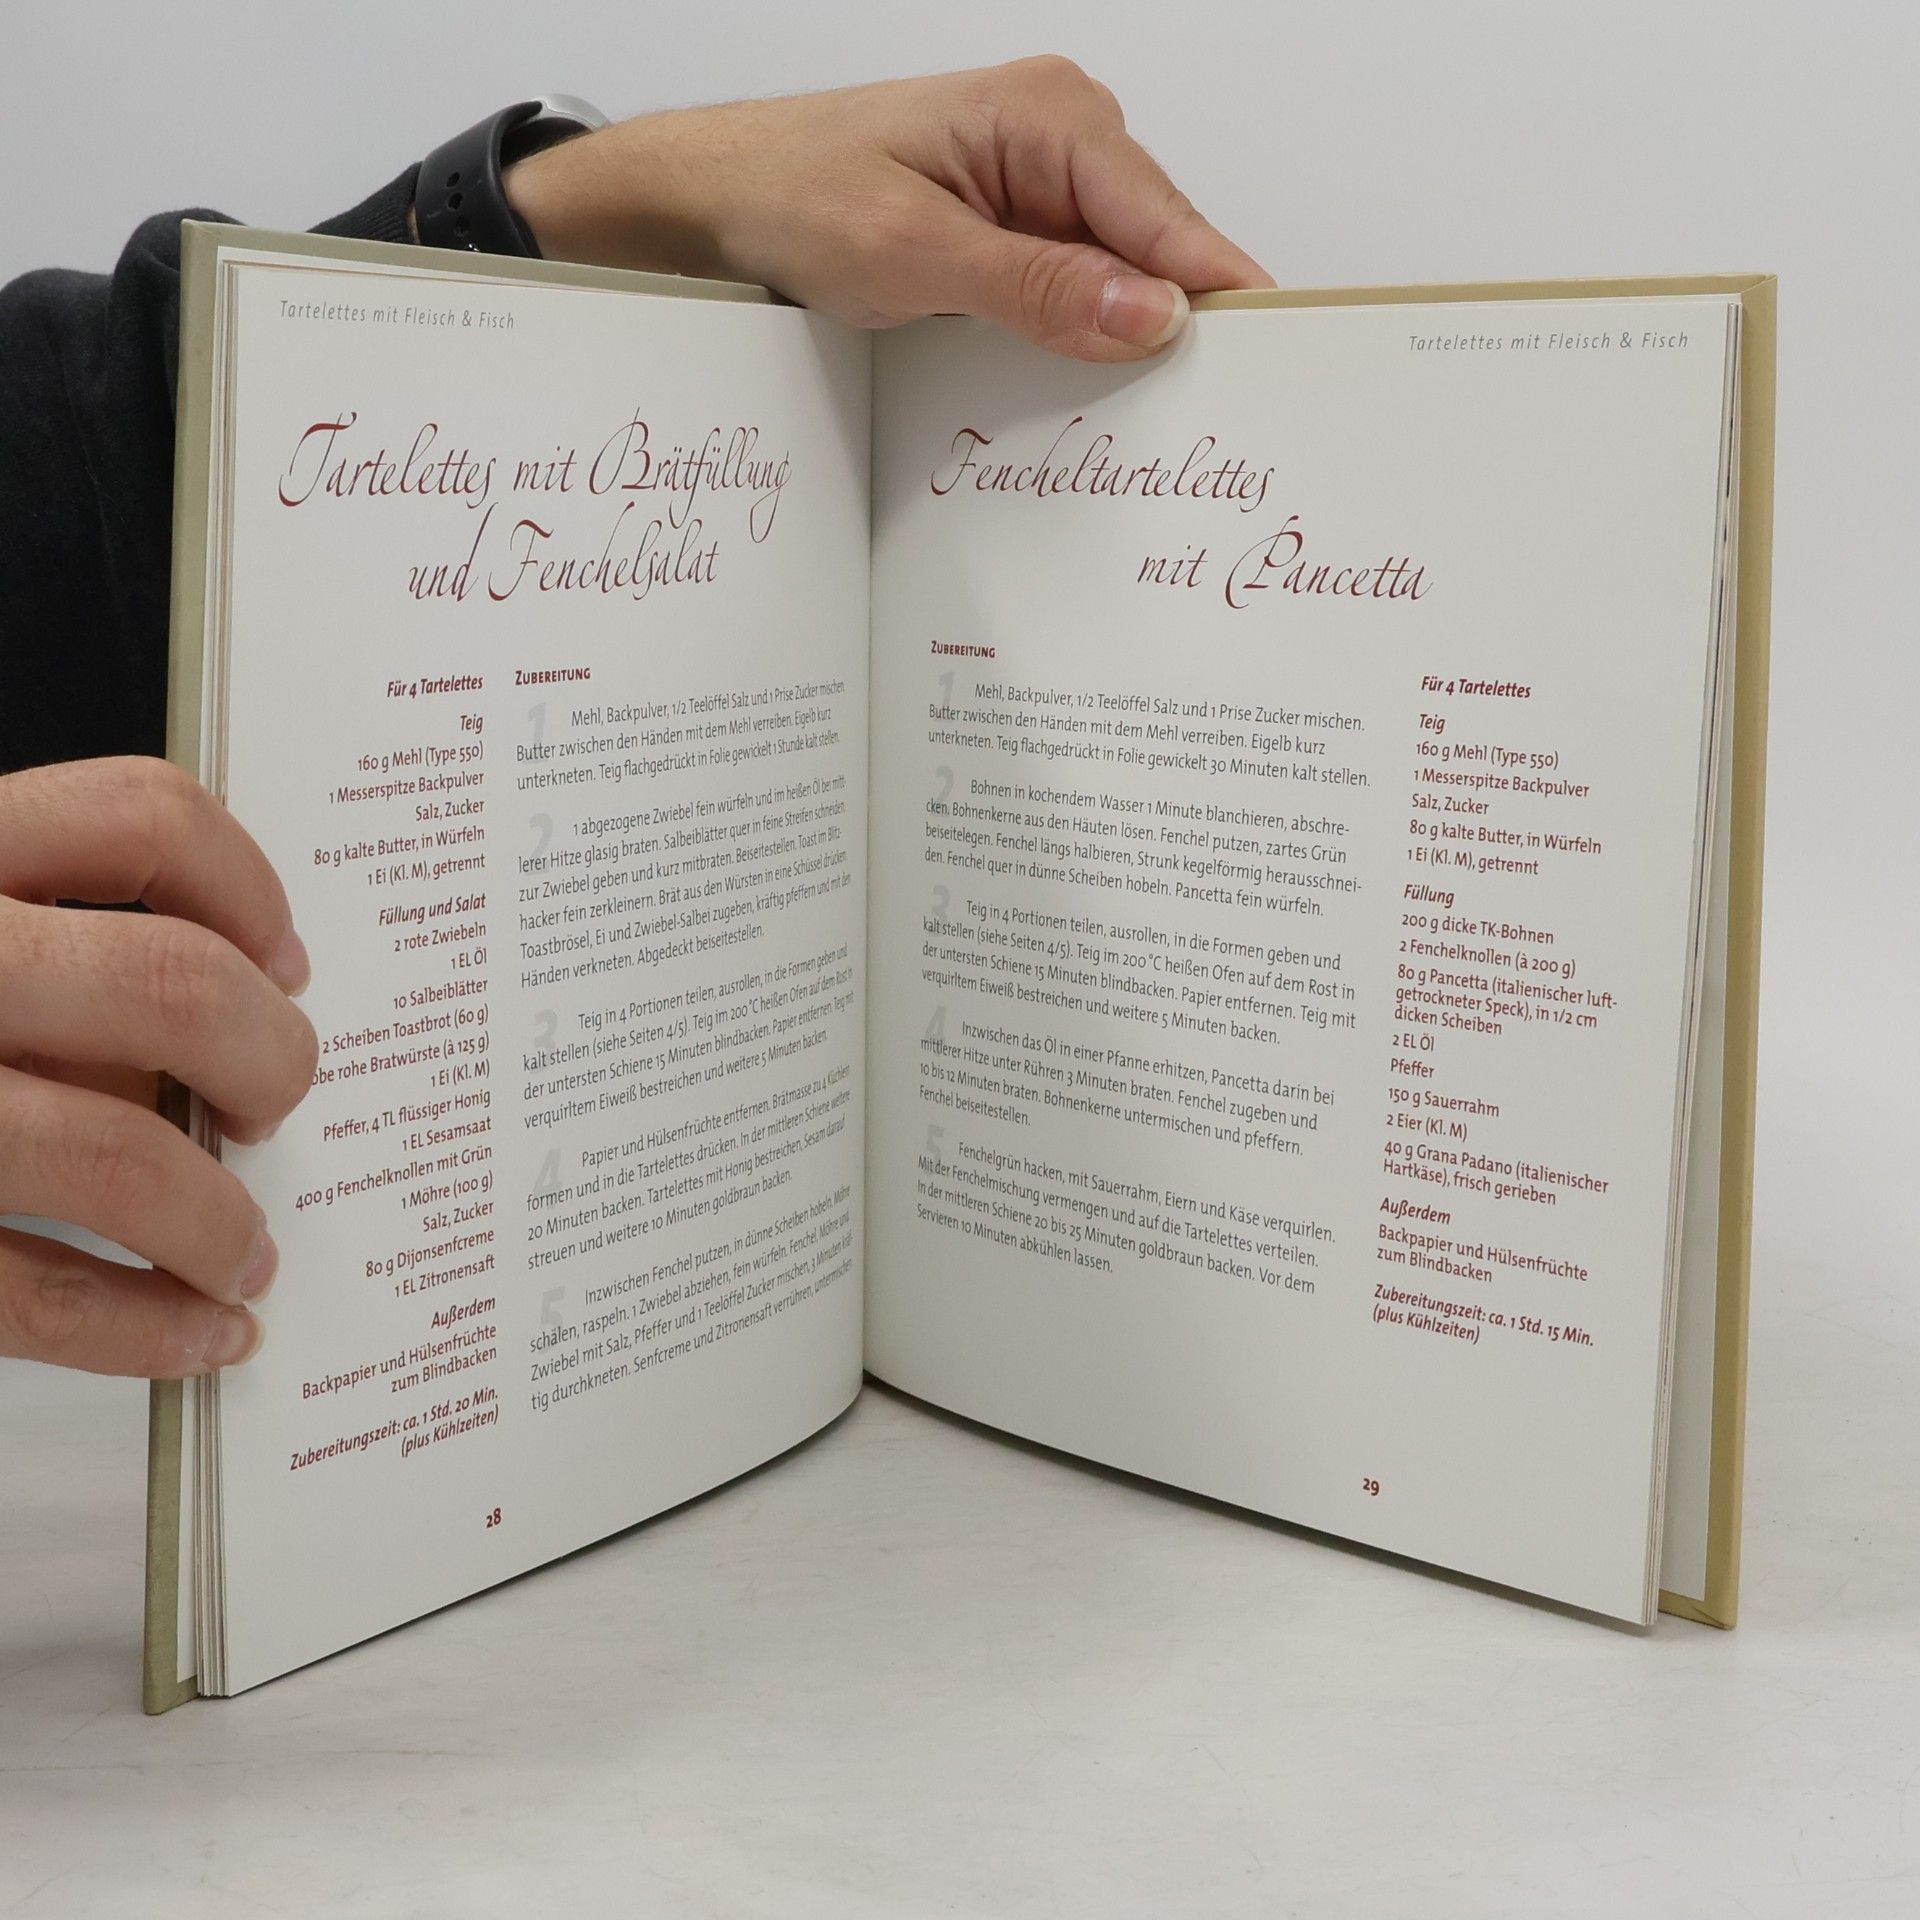 Tartelettes mit Fleisch & Fisch
Tartelettes mit Brätfüllung
und Fenchelsalat
Für 4 Tartelettes
Teig
160 g Mehl (Type 550)
1 Messerspitze Backpulver
Salz, Zucker
80 g kalte Butter, in Würfeln
1 Ei (Kl. M), getrennt
Füllung und Salat
2 rote Zwiebeln
1 EL Öl
10 Salbeiblätter
2 Scheiben Toastbrot (60 g)
rohe Bratwürste (à 125 g)
1 Ei (Kl. M)
Pfeffer, 4 TL flüssiger Honig
1 EL Sesamsaat
400 g Fenchelknollen mit Grün
1 Möhre (100 g)
Salz, Zucker
80 g Dijonsenfcreme
1 EL Zitronensaft
Außerdem
Backpapier und Hülsenfrüchte
zum Blindbacken
Zubereitungszeit: ca. 1 Std. 20 Min.
(plus Kühlzeiten)
Zubereitung
1 Mehl, Backpulver, 1/2 Teelöffel Salz und 1 Prise Zucker mischen.
Butter zwischen den Händen mit dem Mehl verreiben. Eigelb kurz
unterkneten. Teig flachgedrückt in Folie gewickelt 1 Stunde kalt stellen.
2 1 abgezogene Zwiebel fein würfeln und im heißen Öl bei mitt-
lerer Hitze glasig braten. Salbeiblätter quer in feine Streifen schneiden,
zur Zwiebel geben und kurz mitbraten. Beiseitestellen. Toast im Blitz-
hacker fein zerkleinern. Brät aus den Würsten in eine Schüssel drücken.
Toastbrösel, Ei und Zwiebel-Salbei zugeben, kräftig pfeffern und mit den
Händen verkneten. Abgedeckt beiseitestellen.
3 Teig in 4 Portionen teilen, ausrollen, in die Formen geben und
kalt stellen (siehe Seiten 4/5). Teig im 200 °C heißen Ofen auf dem Rost in
der untersten Schiene 15 Minuten blindbacken. Papier entfernen. Teig mit
verquirltem Eiweiß bestreichen und weitere 5 Minuten backen.
4 Papier und Hülsenfrüchte entfernen. Brätmasse zu 4 Küchlein
formen und in die Tartelettes drücken. In der mittleren Schiene weitere
20 Minuten backen. Tartelettes mit Honig bestreichen, Sesam darauf
streuen und weitere 10 Minuten goldbraun backen.
5 Inzwischen Fenchel putzen, in dünne Scheiben hobeln. Möhre
schälen, raspeln. 1 Zwiebel abziehen, fein würfeln. Fenchel, Möhre und
Zwiebel mit Salz, Pfeffer und 1 Teelöffel Zucker mischen, 3 Minuten kräf-
tig durchkneten. Senfcreme und Zitronensaft verrühren, untermischen.
28
Tartelettes mit Fleisch & Fisch
Fencheltartelettes
mit Pancetta
Zubereitung
1 Mehl, Backpulver, 1/2 Teelöffel Salz und 1 Prise Zucker mischen.
Butter zwischen den Händen mit dem Mehl verreiben. Eigelb kurz
unterkneten. Teig flachgedrückt in Folie gewickelt 30 Minuten kalt stellen.
2 Bohnen in kochendem Wasser 1 Minute blanchieren, abschre-
cken. Bohnenkerne aus den Häuten lösen. Fenchel putzen, zartes Grün
beiseitelegen. Fenchel längs halbieren, Strunk kegelförmig herausschnei-
den. Fenchel quer in dünne Scheiben hobeln. Pancetta fein würfeln.
3 Teig in 4 Portionen teilen, ausrollen, in die Formen geben und
kalt stellen (siehe Seiten 4/5). Teig im 200 °C heißen Ofen auf dem Rost in
der untersten Schiene 15 Minuten blindbacken. Papier entfernen. Teig mit
verquirltem Eiweiß bestreichen und weitere 5 Minuten backen.
4 Inzwischen das Öl in einer Pfanne erhitzen, Pancetta darin bei
mittlerer Hitze unter Rühren 3 Minuten braten. Fenchel zugeben und
10 bis 12 Minuten braten. Bohnenkerne untermischen und pfeffern.
Fenchel beiseitestellen.
5 Fenchelgrün hacken, mit Sauerrahm, Eiern und Käse verquirlen.
Mit der Fenchelmischung vermengen und auf die Tartelettes verteilen.
In der mittleren Schiene 20 bis 25 Minuten goldbraun backen. Vor dem
Servieren 10 Minuten abkühlen lassen.
Für 4 Tartelettes
Teig
160 g Mehl (Type 550)
1 Messerspitze Backpulver
Salz, Zucker
80 g kalte Butter, in Würfeln
1 Ei (Kl. M), getrennt
Füllung
200 g dicke TK-Bohnen
2 Fenchelknollen (à 200 g)
80 g Pancetta (italienischer luft-
getrockneter Speck), in 1/2 cm
dicken Scheiben
2 EL Öl
Pfeffer
150 g Sauerrahm
2 Eier (Kl. M)
40 g Grana Padano (italienischer
Hartkäse), frisch gerieben
Außerdem
Backpapier und Hülsenfrüchte
zum Blindbacken
Zubereitungszeit: ca. 1 Std. 15 Min.
(plus Kühlzeiten)
29